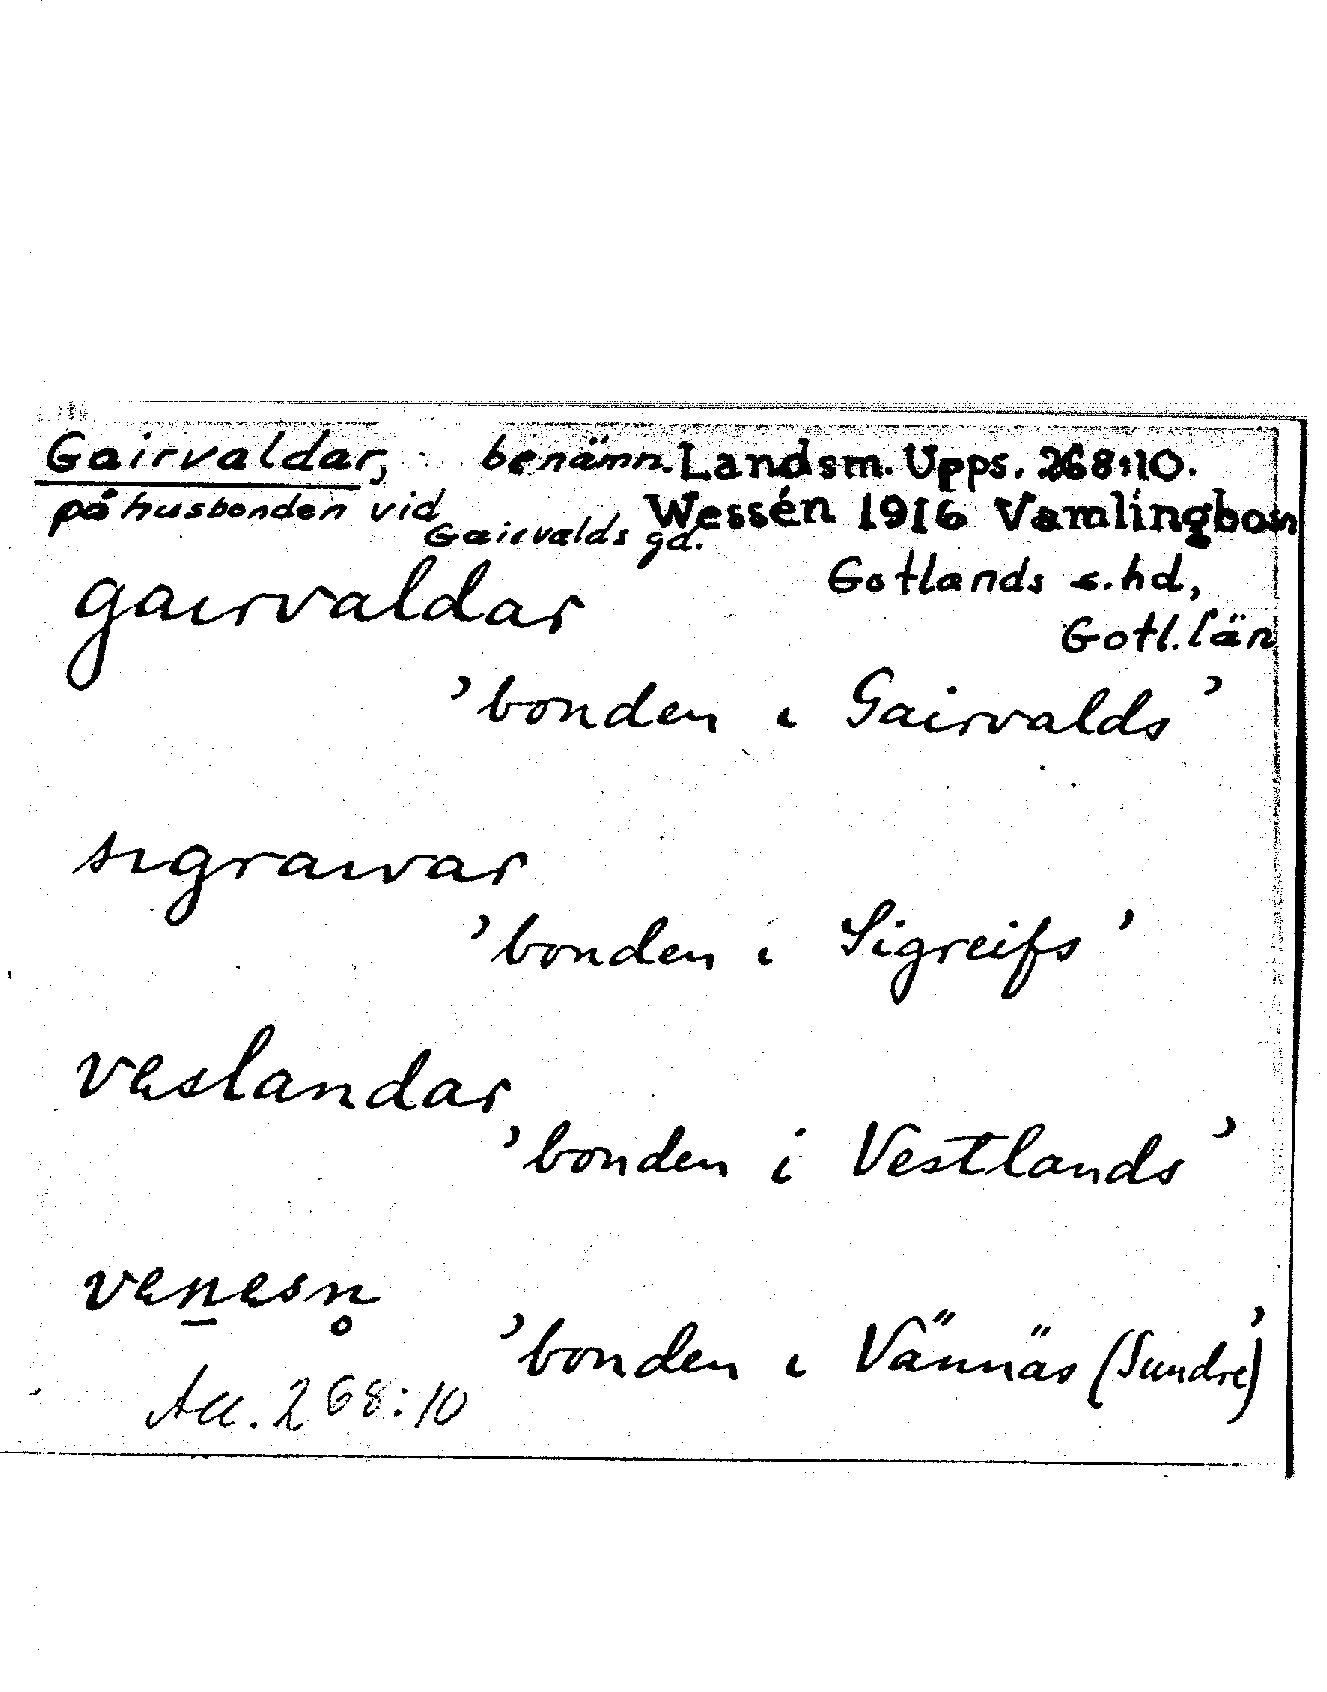 Gairvaldar, benämn. Landsm. Upps. 268:10.
på husbonden vid Wessén 1916 Vamlingbosn
Gairvalds gd.
gaırvaldar Gotlands s.hd,
Gotl. län
'bonden ı Gairvalds'
sıgraıvar
'bonden ı Sigreifs'
veslandar
'bonden i Vestlands'
ven̲esn̥
'bonden ı Vännäs (Sundre)'
Acc. 268:10